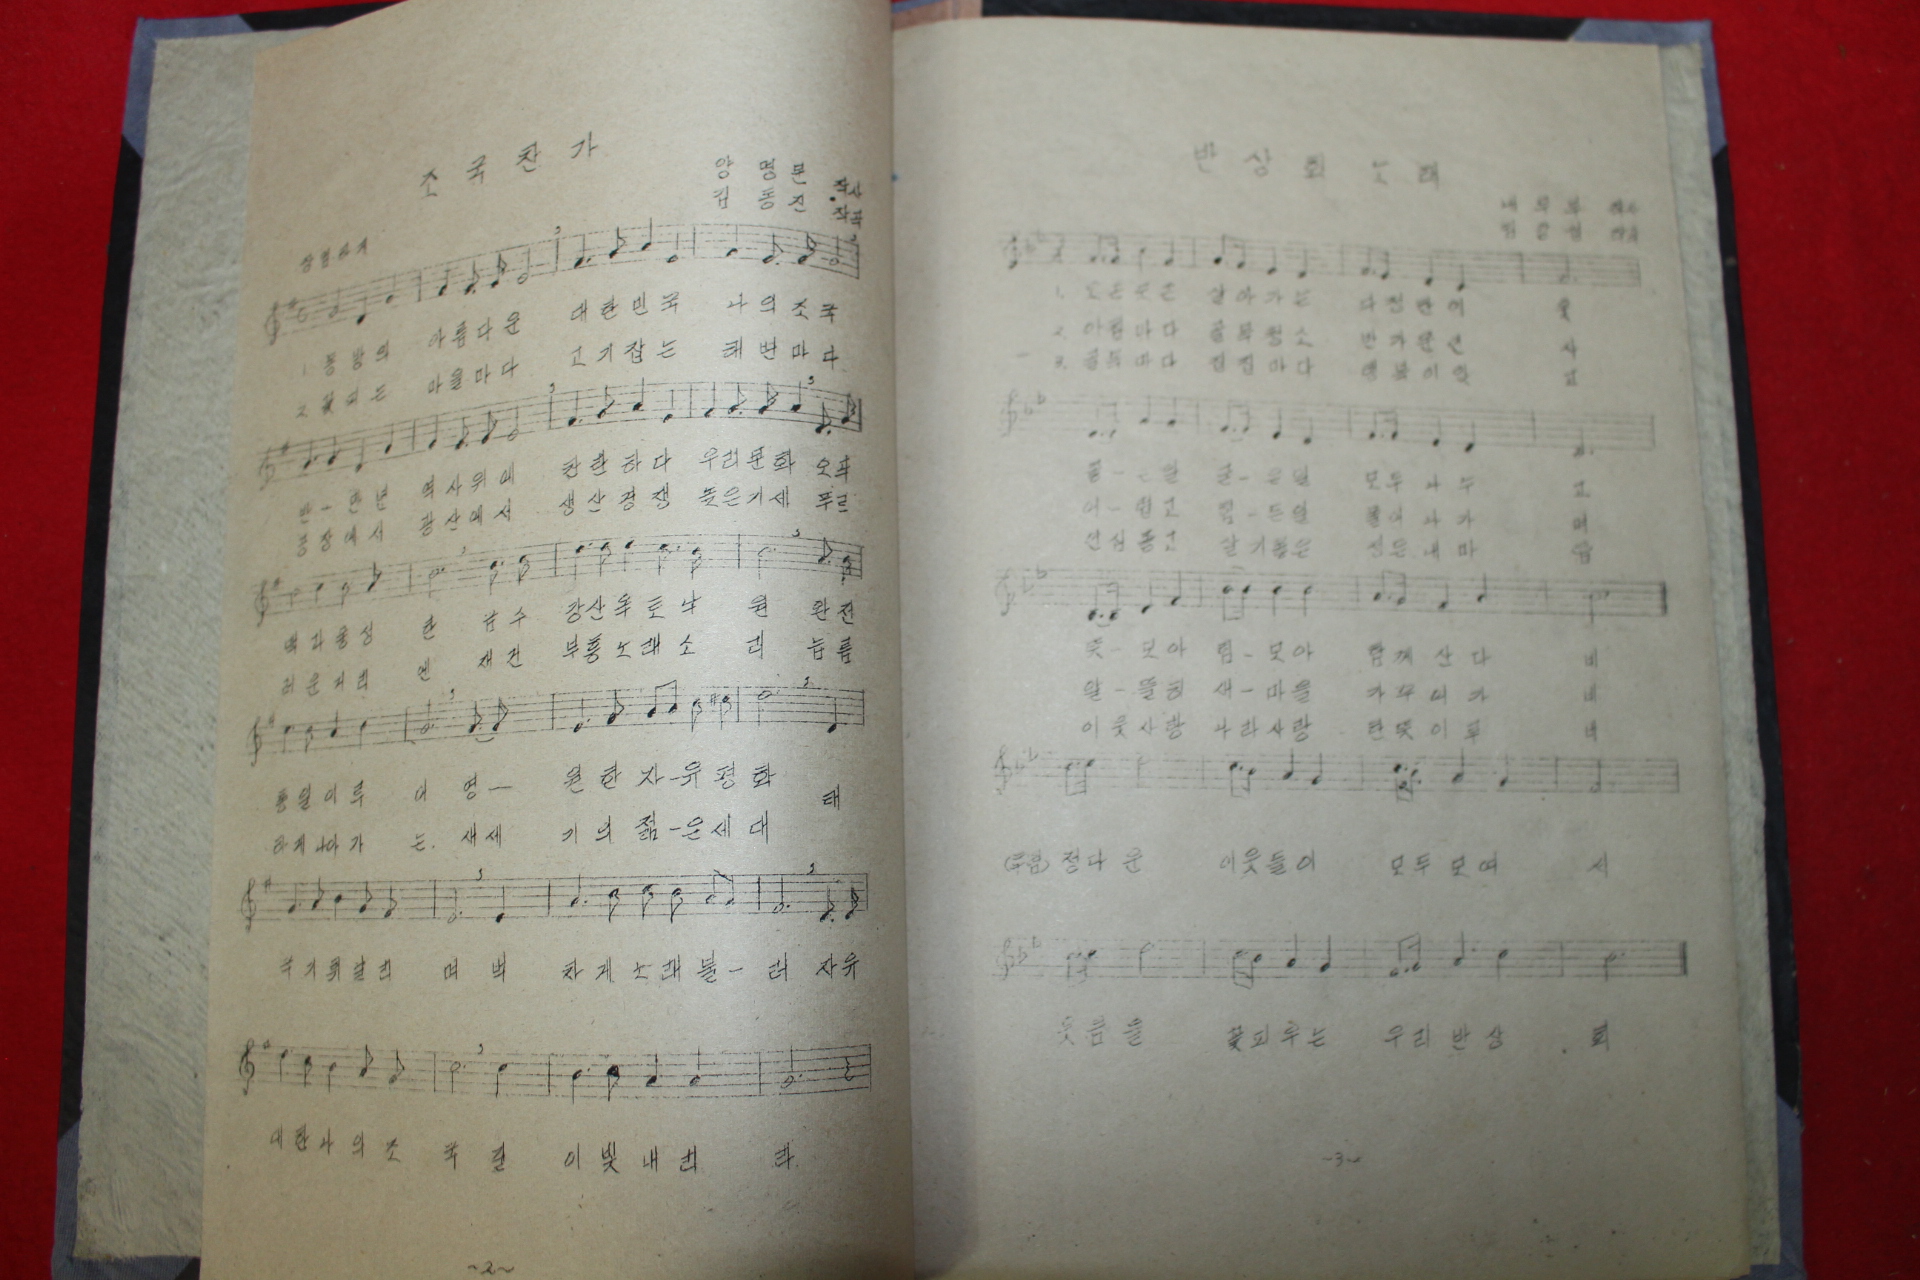 조국찬가
양명문 작사
김동진 작곡
1. 동방의 아름다운 대한민국 나의조국
2. 꽃피는 마을마다 고기잡는 해변마다
반-만년 역사위에 찬란하다 우리문화 오곡
공장에서 광산에서 생산경쟁 높은기세 푸르
백과풍성 한 금수 강산옥토낙 원 완전
러운거리 엔 재건 부흥노래소 리 늠름
통일이루 어 영- 원한 자-유평화
태
하게나아가 는. 새세 기의 젊-은세대
극기휘날리 며 벅 차게노래불-러 자유
대한나의조 국 길 이빛내리 라.
~2~
반상회노래
내무부 작사
작곡
1. 살아가는 다정한이 웃
2. 아침마다 청소 반가운 사
3. 집집마다 행복이
모두 나누 고
어-렵고 힘-든일
뜻-모아 힘-모아 함께 산다 네
알-뜰히 새-마을 네
이웃사랑 나라사랑 한뜻이루 네
(후렴) 정다운 이웃들이 모두모여 서
웃음을 꽃피우는 우리반상 회
~3~